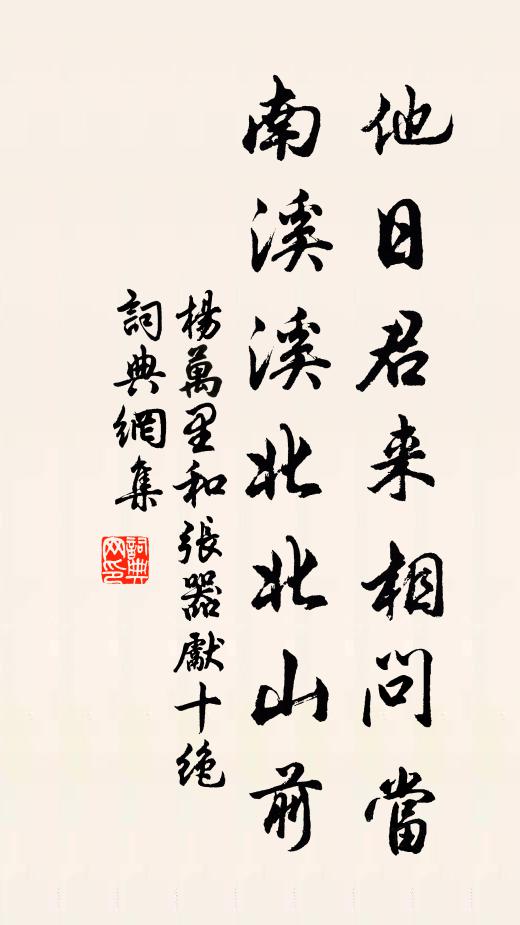 他日君来相問當
南溪溪北北山前
楊萬里和張器獻十絶
詞典網集
詞典
网印